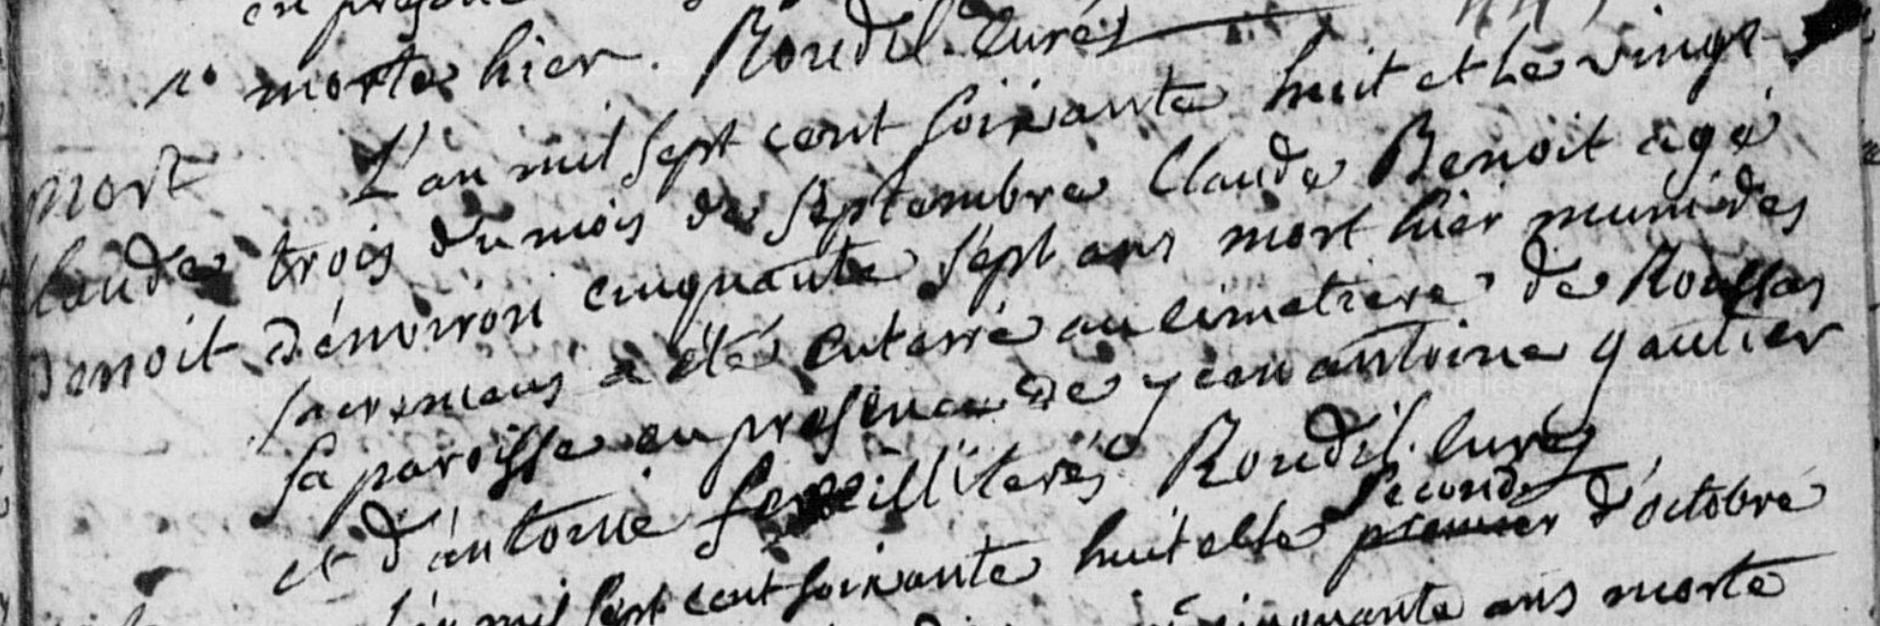 en presence
morte hier. Roudil. Curé
mort L'an mil sept cent soixante huit et le vingt
Claude trois du mois de septembre Claude Benoit agé
Benoit d'environ cinquante sept ans mort hier muni des
sacremens a été enterré au cimetiere de Roussas
sa paroisse en presence de jean antoine gautier
et d'antoine illiterés Roudil. Curé
second
L'an mil sept cent soixante huit et le premier d'octobre
cinquante ans morte